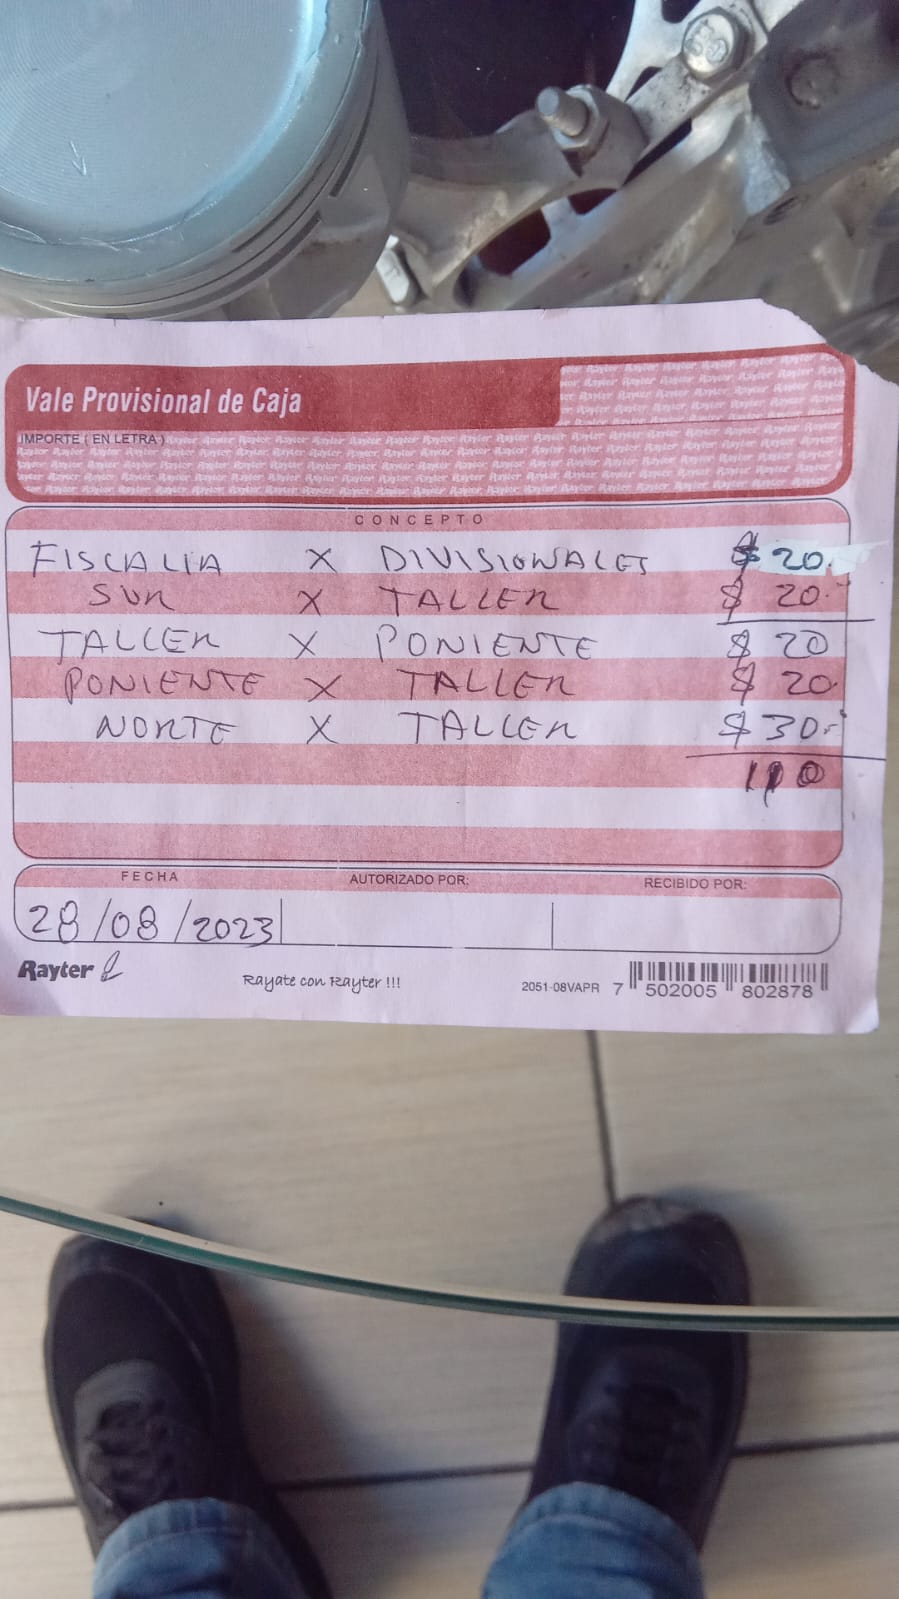 Vale Provisional de Caja
IMPORTE ( EN LETRA )
CONCEPTO
FISCALIA X DIVISIONALES $ 20.
SUR X TALLER $ 20.-
TALLER X PONIENTE $ 20
PONIENTE X TALLER $ 20.
NORTE X TALLER $ 30.-
110
FECHA AUTORIZADO POR: RECIBIDO POR:
28/08/2023
Rayter Rayate con Rayter !!! 2051-08VAPR 7 502005 802878